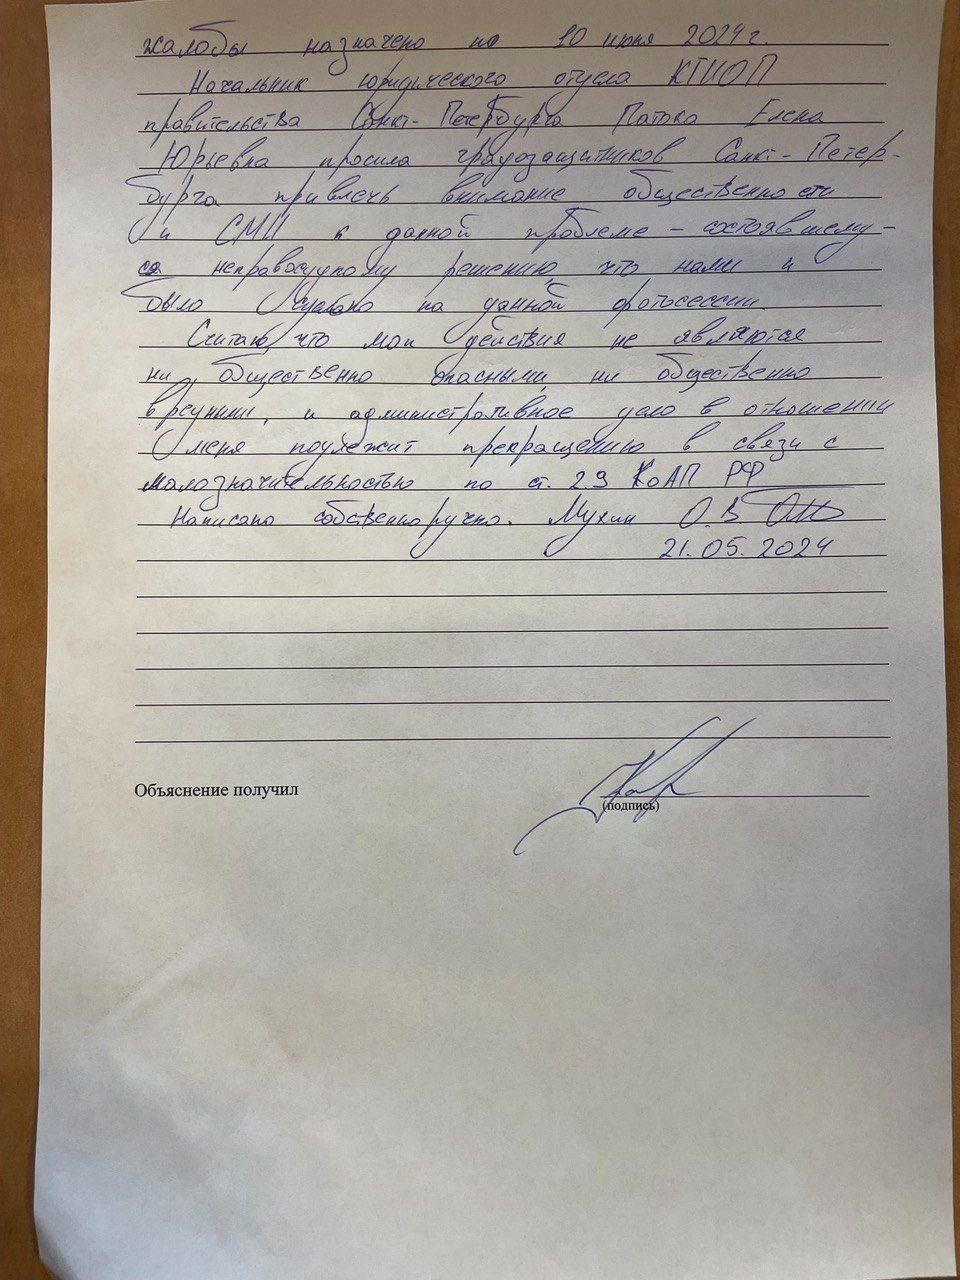 жалобы назначено на 10 июня 2024 г.
Начальник юридического отдела КГИОП
правительства Санкт-Петербурга Патока Елена
Юрьевна просила градозащитников Санкт-Петер-
бурга привлечь внимание общественности
и СМИ к данной проблеме - состоявшему-
ся неправосудному решению, что нами и
было сделано на данной фотосессии.
Считаю, что мои действия не являются
ни общественно опасными, ни общественно
вредными, и административное дело в отношении
меня подлежит прекращению в связи с
малозначительностью по ст. 2.9 КоАП РФ
Написано собственноручно. Мухин О.В.
21.05.2024
Объяснение получил
(подпись)